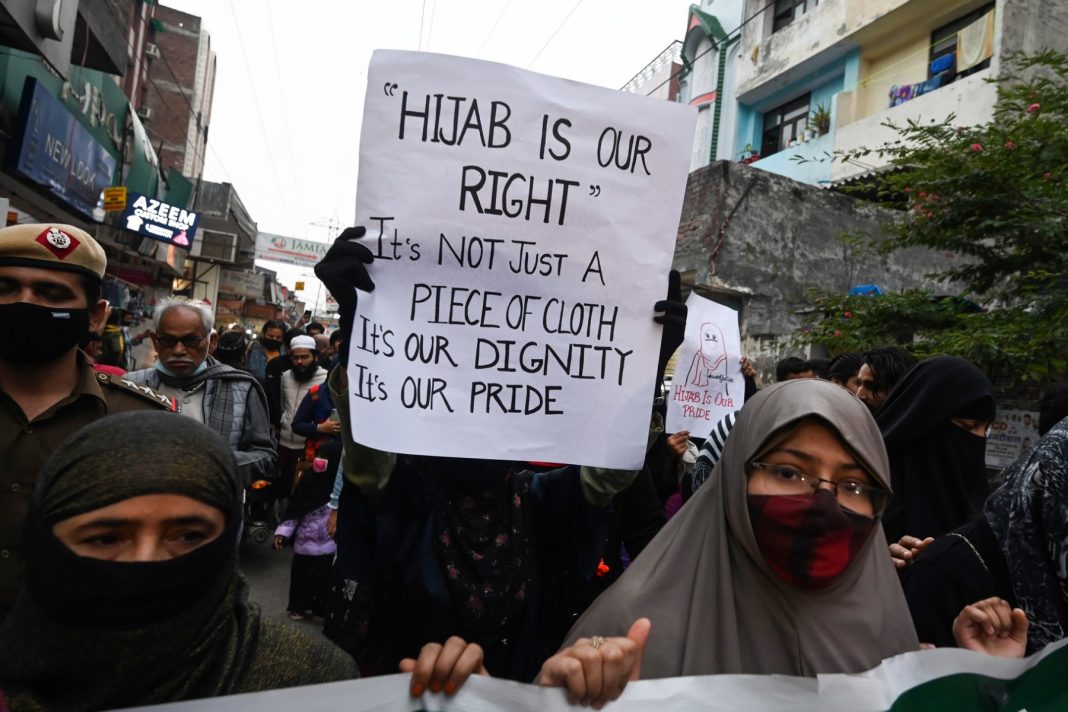 "HIJAB IS OUR
RIGHT"
It's NOT JUST A
PIECE OF CLOTH
It's OUR DIGNITY
It's OUR PRIDE
HIJAB IS OUR
PRIDE
NEW LOOK
AZEEM
JAMIA